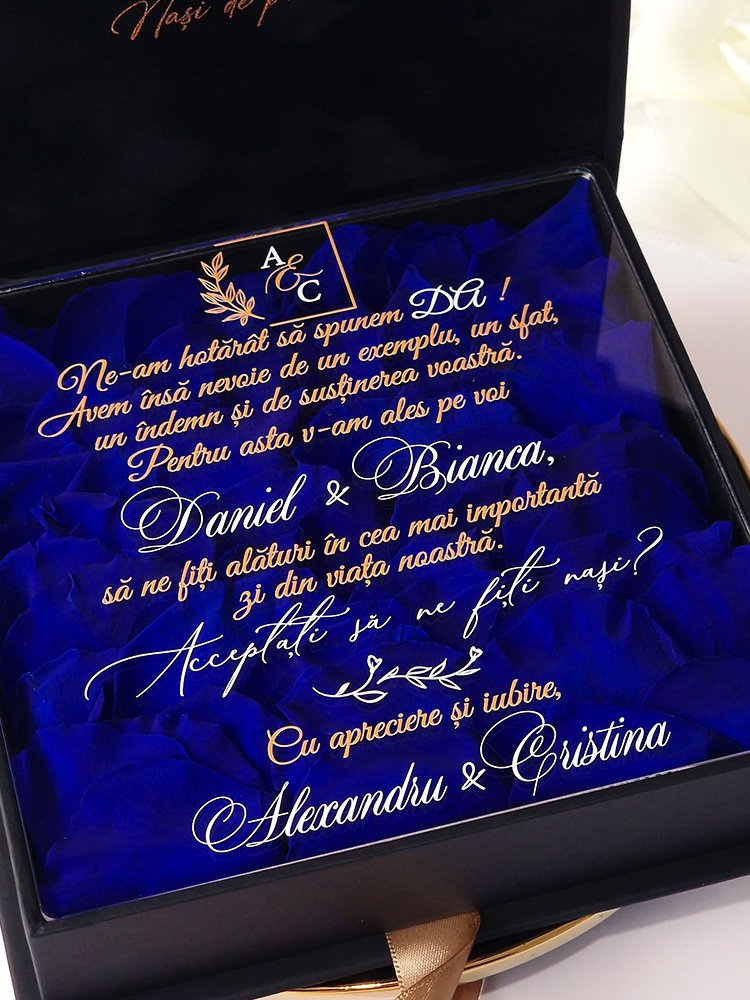 Nași de
A
&
C
Ne-am hotărât să spunem DA !
Avem însă nevoie de un exemplu, un sfat,
un îndemn și de susținerea voastră.
Pentru asta v-am ales pe voi
Daniel & Bianca,
să ne fiți alături în cea mai importantă
zi din viața noastră.
Acceptați să ne fiți nași?
Cu apreciere și iubire,
Alexandru & Cristina